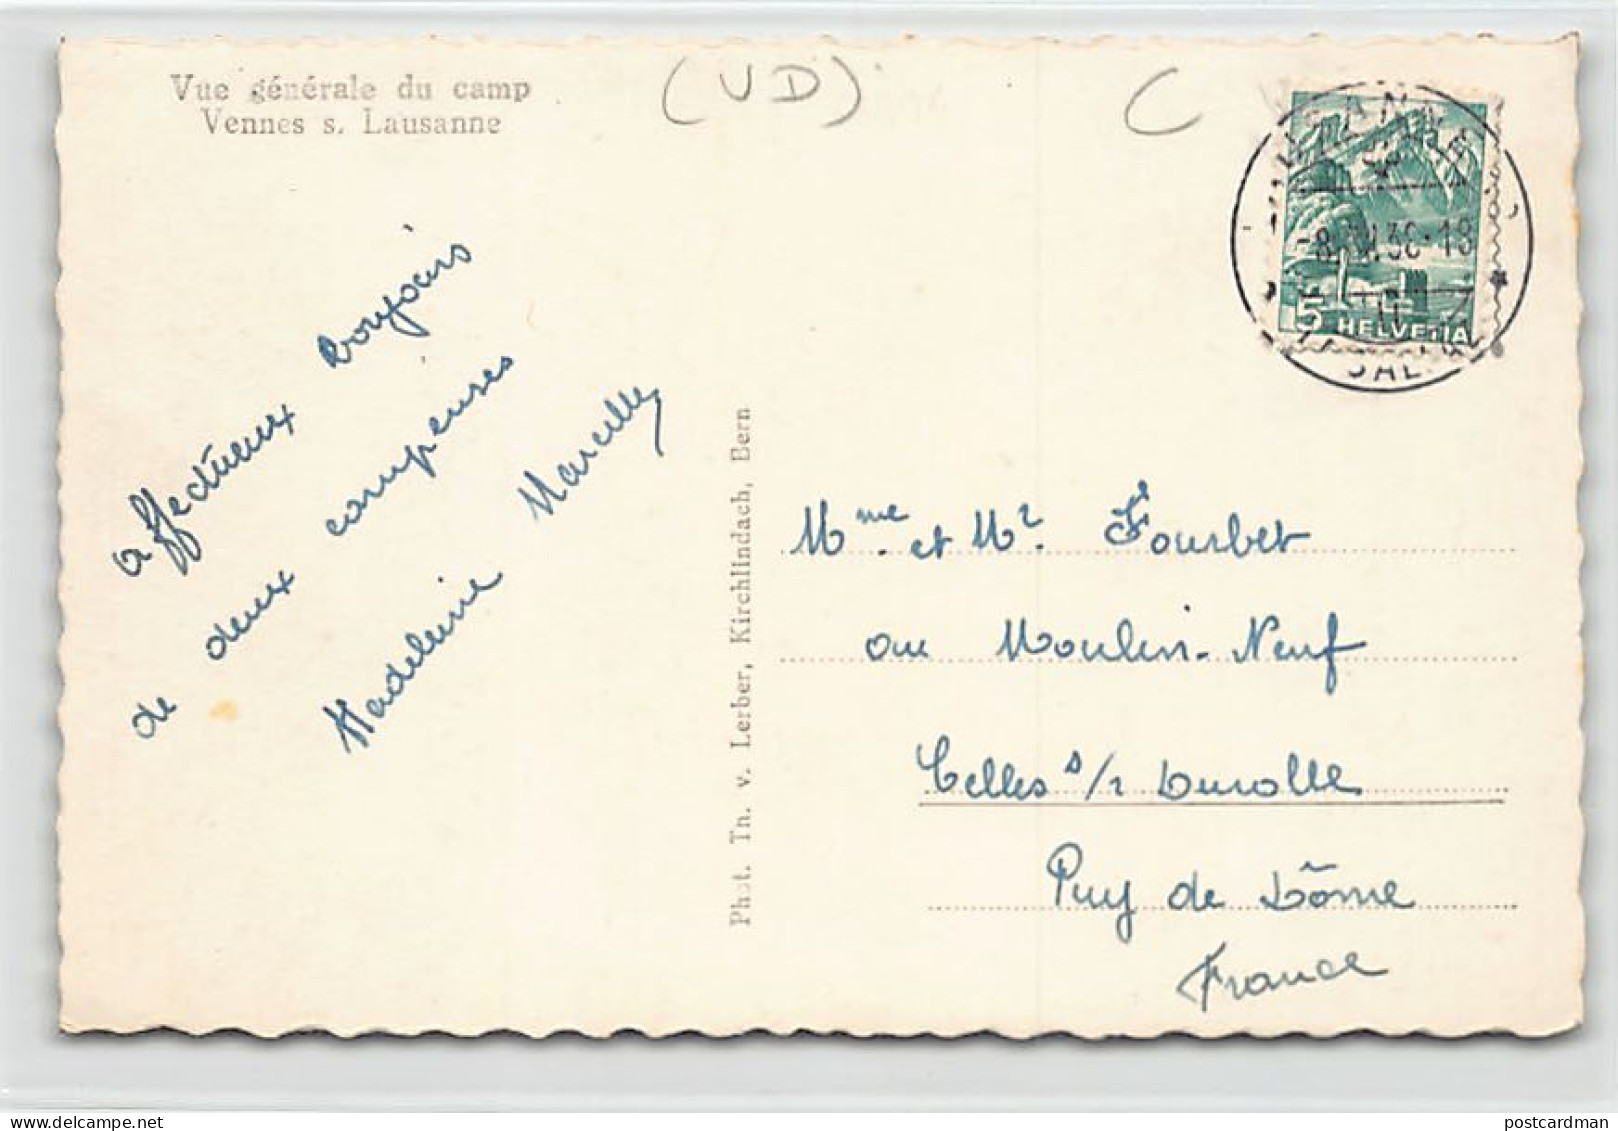 Vue générale du camp
Vennes s. Lausanne
(VD)
C
5 HELVETIA
affectueux toujours
de deux campeuses
Madeleine Marcelle
Phot. Th. v. Lerber, Kirchlindach, Bern
Mme. et Mr. Fourbet
au Moulin-Neuf
Celles s/r Durolle
Puy de Dôme
France
postcardman